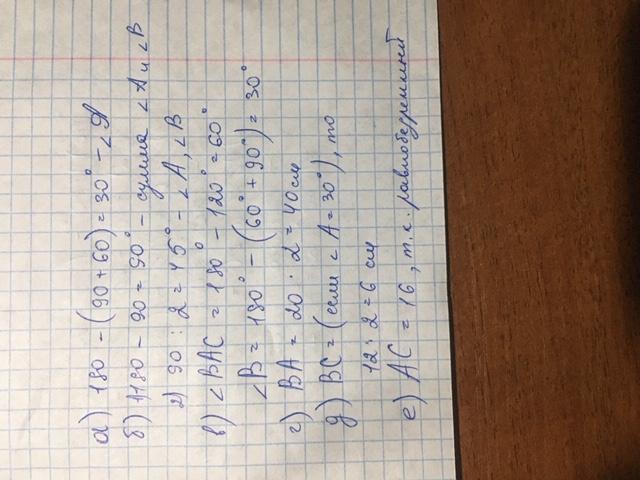 а) 180 - (90 + 60) = 30° - ∠A
б) 1) 180 - 90 = 90° - сумма ∠A и ∠B
2) 90 : 2 = 45° - ∠A, ∠B
в) ∠BAC = 180° - 120° = 60°
∠B = 180° - (60° + 90°) = 30°
г) BA = 20 · 2 = 40 см
д) BC = (если ∠A = 30°), то
12 : 2 = 6 см
е) AC = 16, т.к. равнобедренный